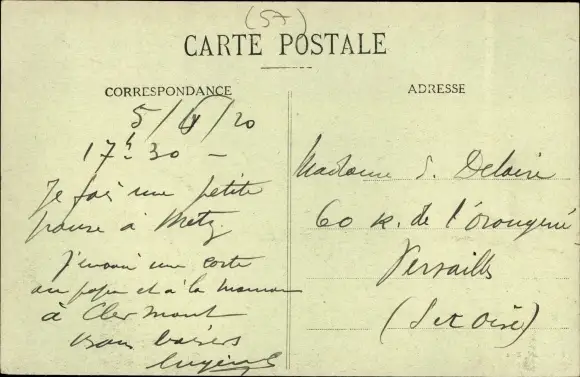 (57)
CARTE POSTALE
CORRESPONDANCE
5/V/20
17h30 -
Je fais une petite
pause à Metz.
J'envoie une carte
au papa et à la maman
à Clermont
bons baisers
Eugène
ADRESSE
Madame E. Delaire
60 R. de l'Orangerie
Versailles
(S et Oise)